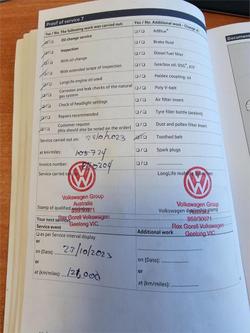 Proof of service 7
Yes / No The following work was carried out:
Yes / No Additional work - Change of
Oil change service
AdBlue®
Inspection
Brake fluid
With oil change
Diesel fuel filter
With extended scope of inspection
LongLife engine oil used
Haldex coupling oil
Corrosion and leak checks of the natural gas system
Poly V-belt
Check of headlight settings
Air filter insert
Repairs recommended
Tyre filler bottle (sealant)
Customer request
(this should be noted on the order)
Dust and pollen filter insert
Service carried out on:
Toothed belt
at km/miles:
Spark plugs
Invoice number:
Service carried out:
Volkswagen Group
Australia
Rex Gorell Volkswagen
Geelong VIC
Volkswagen
Australia
Rex Gorell Volkswagen
Geelong VIC
Stamp of qualified
Your next service:
Service event
Additional work
as per Service interval display
or
on (Date): 27/10/2023
on (Date):
or
or
at (km/miles):
at (km/miles):